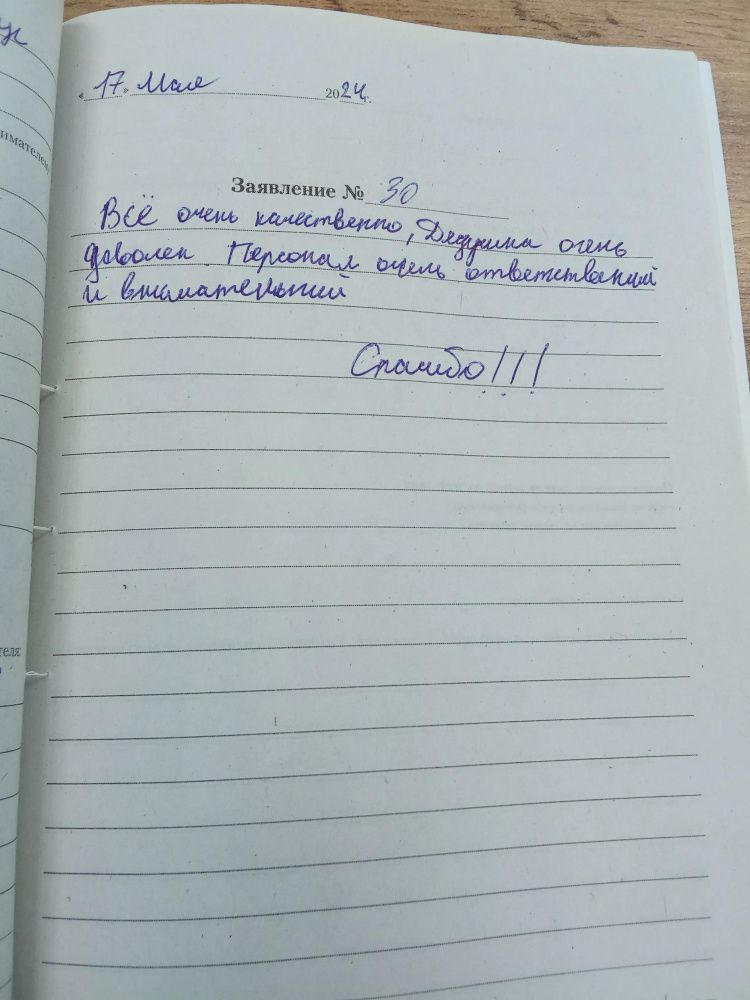 « 17 » Мая 2024 г.
Заявление № 30
Всё очень качественно, Дедушка очень
доволен. Персонал очень ответственый
и внимательный
Спасибо!!!
нимателем
теля: